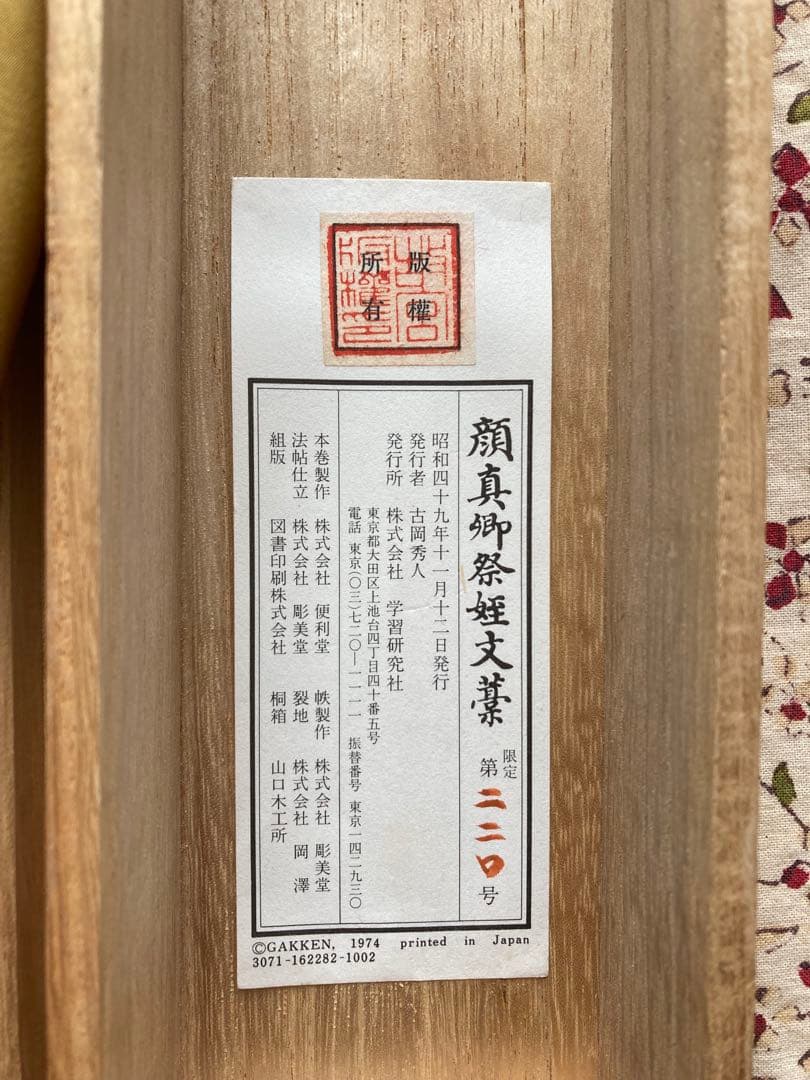 版權
所有
顔真卿祭姪文藁
限定
第二二〇号
昭和四十九年十一月十二日発行
発行者 古岡秀人
発行所 株式会社 学習研究社
東京都大田区上池台四丁目四十番五号
電話 東京(〇三)七二〇―一一一一 振替番号 東京一四二九三〇
本巻製作 株式会社 便利堂 帙製作 株式会社 彫美堂
法帖仕立 株式会社 彫美堂 裂地 株式会社 岡澤
組版 図書印刷株式会社 桐箱 山口木工所
©GAKKEN, 1974 printed in Japan
3071-162282-1002